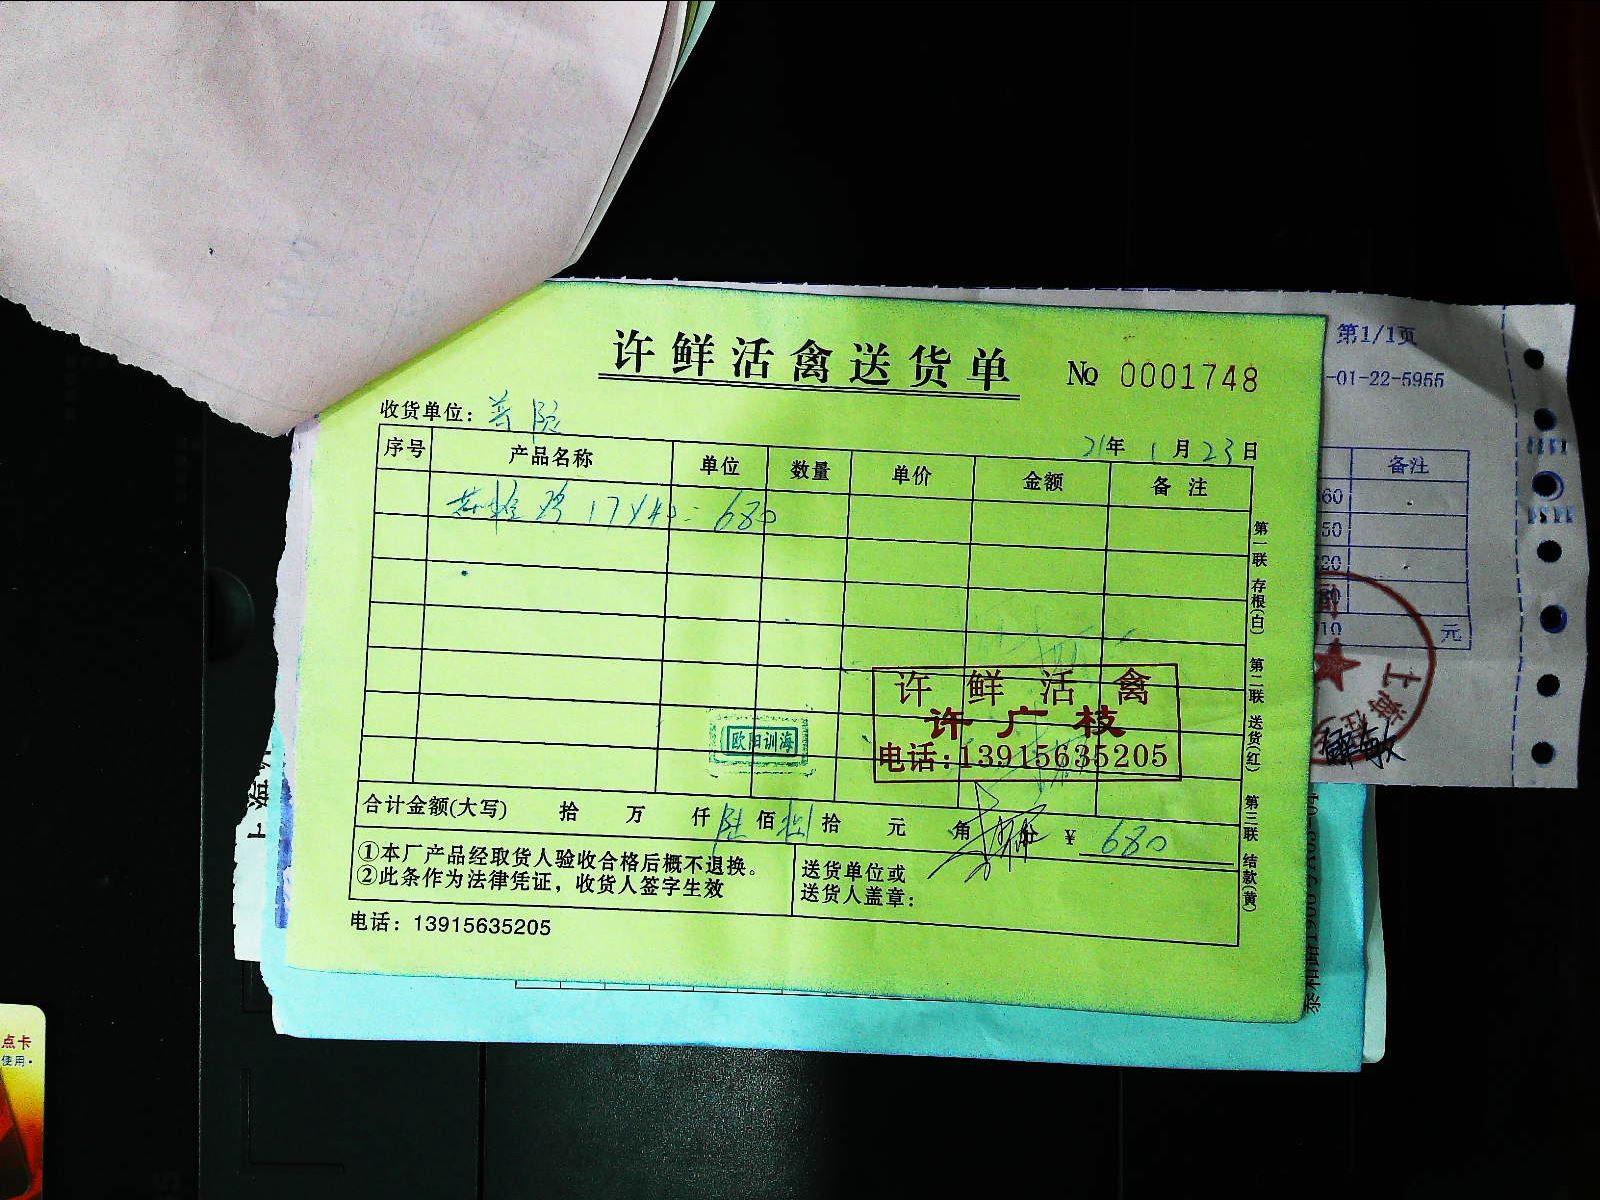 许鲜活禽送货单 № 0001748
收货单位：普院
21年 1月23日
序号 产品名称 单位 数量 单价 金额 备注
鸡 17×40=680
第一联 存根(白) 第二联 送货(红) 第三联 结款(黄)
许鲜活禽
许广枝
电话:13915635205
欧阳训海
合计金额(大写) 拾 万 仟陆佰捌拾 元 角 分 ¥ 680
①本厂产品经取货人验收合格后概不退换。
②此条作为法律凭证，收货人签字生效
送货单位或
送货人盖章：
电话：13915635205
第1/1页
-01-22-5955
备注
60
50
20
10 元
上海
点卡
使用